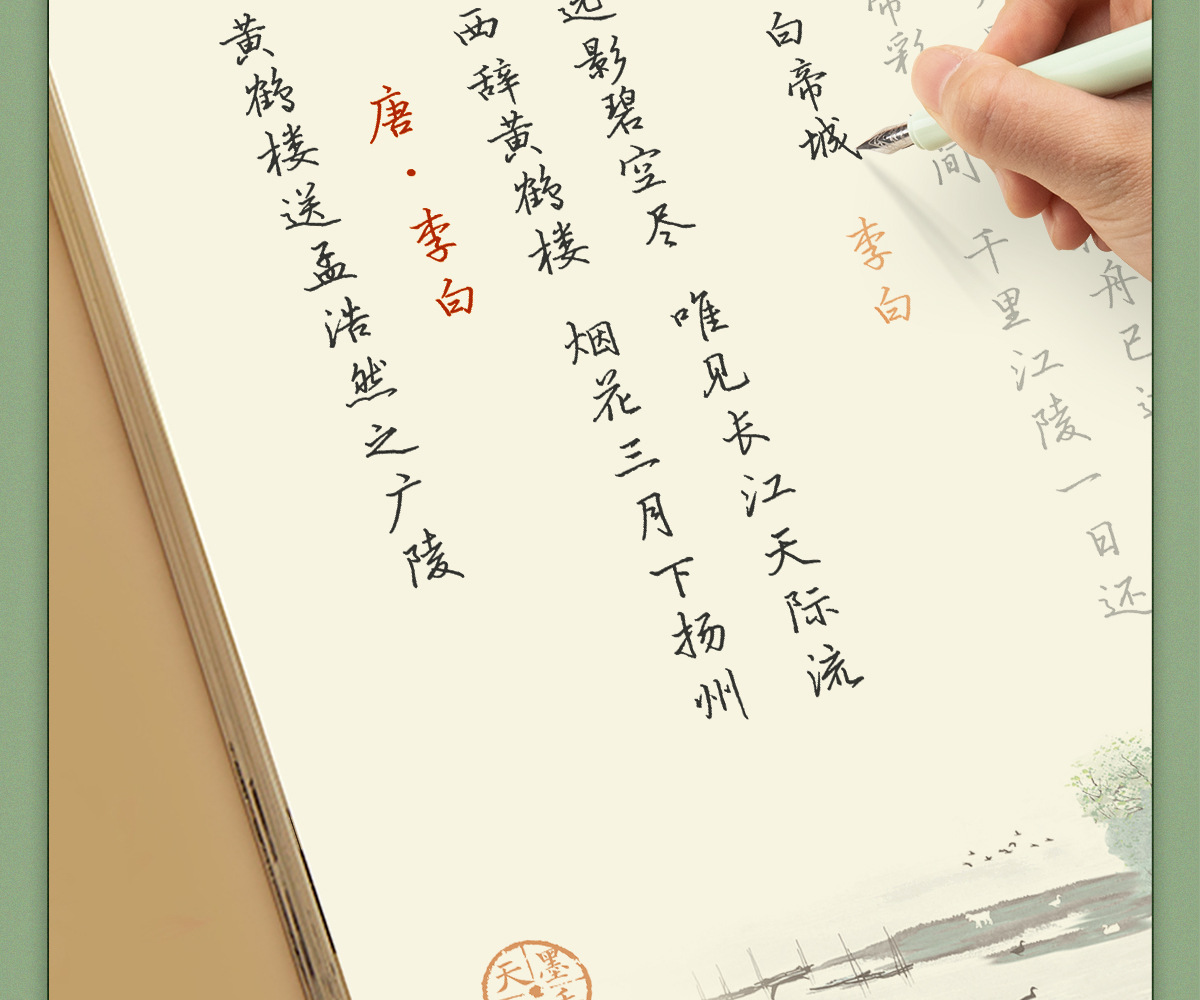 黄鹤楼送孟浩然之广陵
唐·李白
西辞黄鹤楼 烟花三月下扬州
远影碧空尽 唯见长江天际流
白帝城
李白
帝彩 间 千里江陵一日还
舟已
天墨